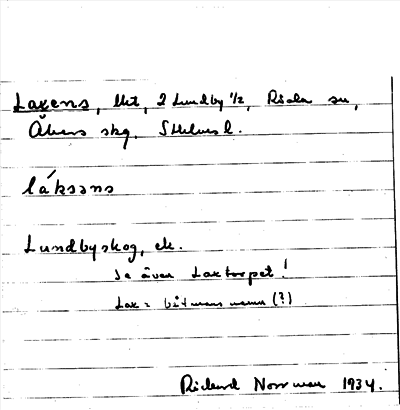 Laxens, lht, 2 Lundby 1/2, Risla sn,
Åkers skg, Sthlms l.
láksəns
Lundbyskog, ek.
Se även Laxtorpet!
Lax = båtmansnamn (?)
Rickard Norrman 1934.